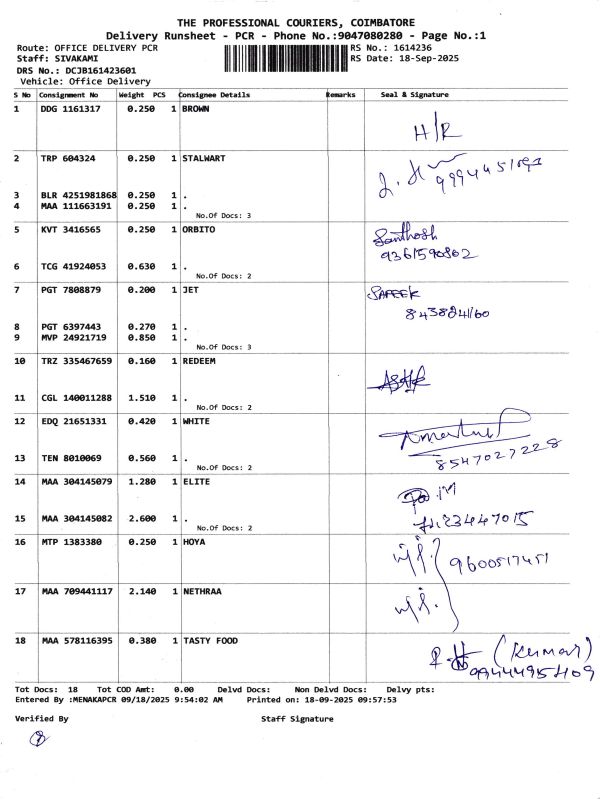 THE PROFESSIONAL COURIERS, COIMBATORE
Delivery Runsheet - PCR - Phone No.:9047080280 - Page No.:1
Route: OFFICE DELIVERY PCR RS No.: 1614236
Staff: SIVAKAMI RS Date: 18-Sep-2025
DRS No.: DCJB161423601
Vehicle: Office Delivery
S No Consignment No Weight PCS Consignee Details Remarks Seal & Signature
1 DDG 1161317 0.250 1 BROWN
H/R
2 TRP 604324 0.250 1 STALWART
3 BLR 4251981868 0.250 1 .
4 MAA 111663191 0.250 1 .
No.Of Docs: 3
5 KVT 3416565 0.250 1 ORBITO Santhosh
9361590862
6 TCG 41924053 0.630 1 .
No.Of Docs: 2
7 PGT 7808879 0.200 1 JET
8438241160
8 PGT 6397443 0.270 1 .
9 MVP 24921719 0.850 1 .
No.Of Docs: 3
10 TRZ 335467659 0.160 1 REDEEM
11 CGL 140011288 1.510 1 .
No.Of Docs: 2
12 EDQ 21651331 0.420 1 WHITE
8547027228
13 TEN 8010069 0.560 1 .
No.Of Docs: 2
14 MAA 304145079 1.280 1 ELITE
15 MAA 304145082 2.600 1 .
No.Of Docs: 2
16 MTP 1383380 0.250 1 HOYA
9600517451
17 MAA 709441117 2.140 1 NETHRAA
18 MAA 578116395 0.380 1 TASTY FOOD (Kumar)
9944495409
Tot Docs: 18 Tot COD Amt: 0.00 Delvd Docs: Non Delvd Docs: Delvy pts:
Entered By :MENAKAPCR 09/18/2025 9:54:02 AM Printed on: 18-09-2025 09:57:53
Verified By Staff Signature